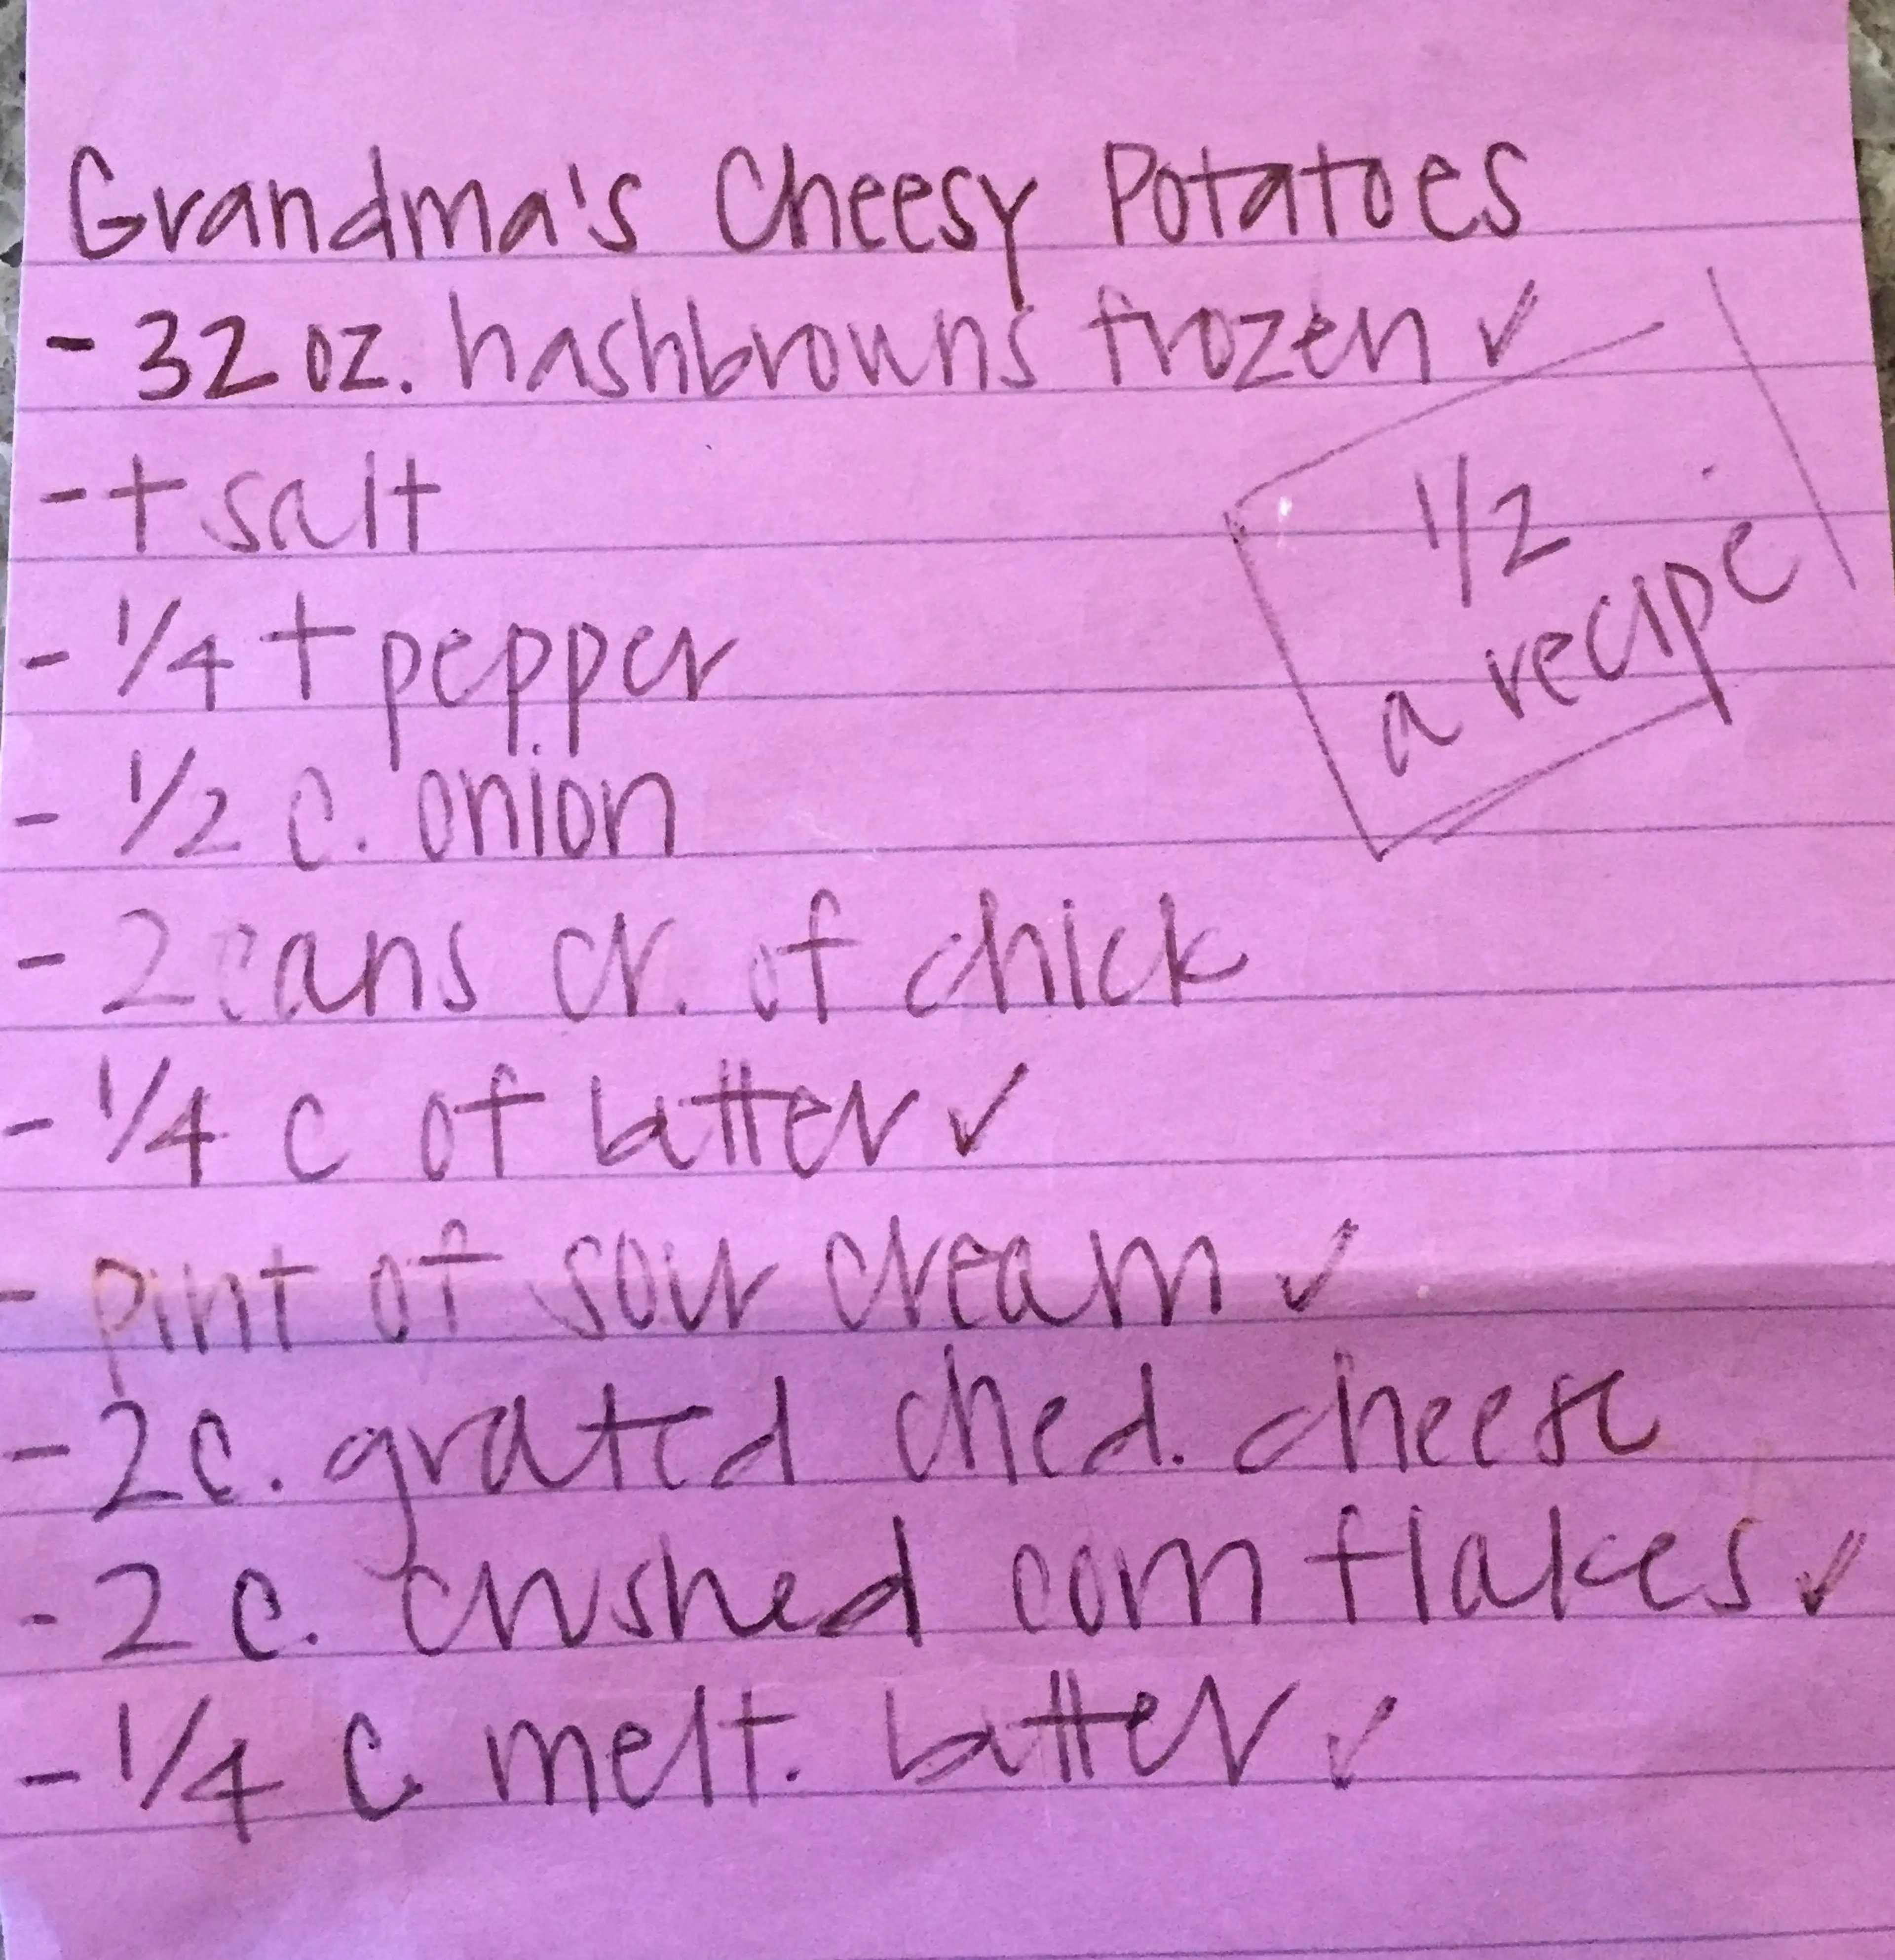 Grandma's Cheesy Potatoes
- 32 oz. hashbrowns frozen ✓
- t salt
- 1/4 t pepper
- 1/2 c. onion
- 2 cans cr. of chick
- 1/4 c of butter ✓
- pint of sour cream ✓
- 2 c. grated ched. cheese
- 2 c. crushed corn flakes ✓
- 1/4 c. melt. butter ✓
1/2
a recipe